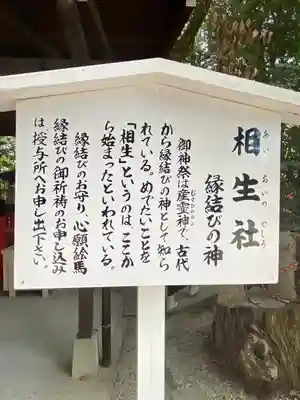 相生社
あい おいの やしろ
縁結びの神
御神祭は産霊神で、古代
むすびのかみ
から縁結びの神として知ら
れている。めでたいことを
「相生」というのは、ここか
ら始まったといわれている。
縁結びのお守り、心願絵馬
縁結びの御祈祷のお申し込み
は授与所へお申し出下さい。